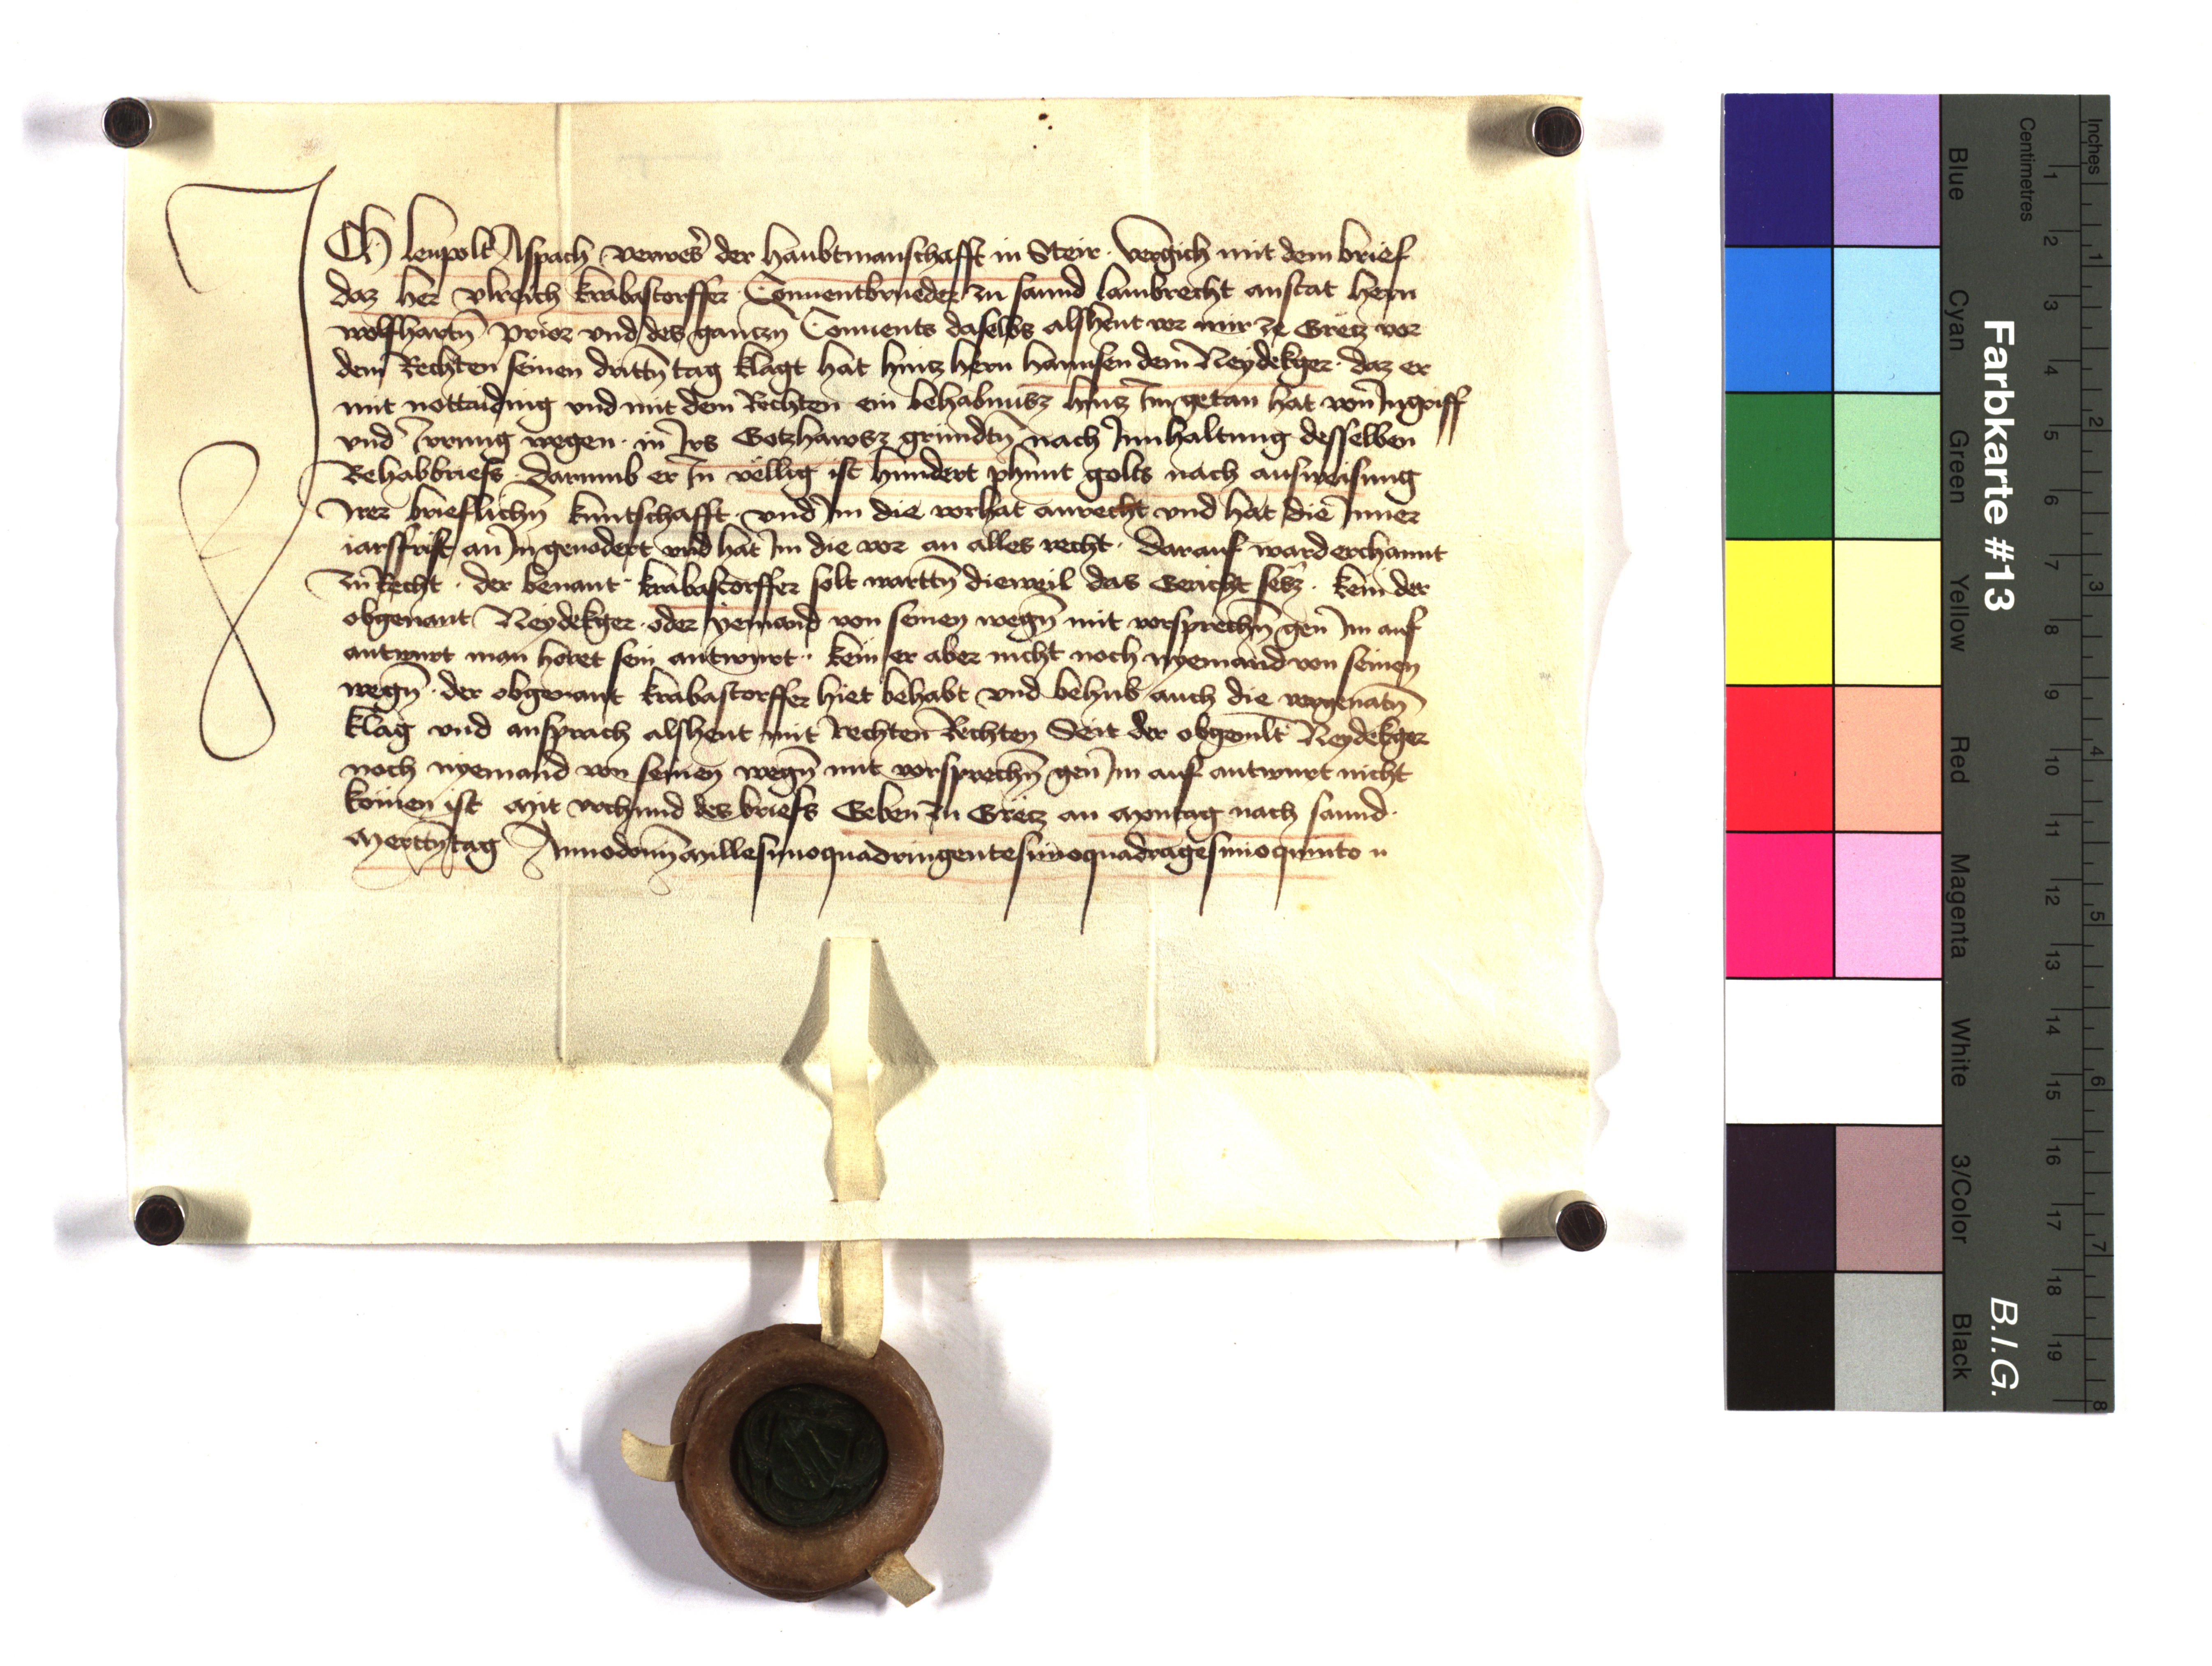 ICh leupolt Aspach verweser der haubtmanschafft in Steir vergich mit dem brief
daz her vlreich krabastorffer Conuentbrueder zu sannd lambrecht anstat hern
wolfhartn prior vnd des gantzn Conuents daselbs alsheut vor mir ze Gretz vor
dem Rechten seinen drittn tag klagt hat hintz hern hannsen dem Neydekger daz er
mit nottaiding vnd mit dem Rechten ein behabnusz hintz Im getan hat von Ingriff
vnd Irrung wegen in Irs Gotzhawsz gründtn nach Innhaltung desselben
Behabbriefs darumb er In vellig ist hundert phunt golts nach ausweisung
Irer brieflichn kuntschafft vnd Im die vorhat anrecht vnd hat die Inner
iarsfrist an In geuodert vnd hat Im die vor an alles recht darauf ward erchannt
zu Recht der benant krabastorffer solt warttn dieweil das Gericht sesz kem der
obgenant Neydekger oder yemand von seinen wegn mit vorsprechn gen Im auf
antwurt man horet sein antwurt kem er aber nicht noch nyemand von seinen
wegn der obgenant krabastorffer hiet behabt vnd behub auch die vorgenatn
klag vnd ansprach alsheut mit Rechten Rechten Seit der obgenant Neydekger
noch nyemand von seinen wegn mit vorsprechn gen Im auf antwurt nicht
komen ist Mit vrchund des briefs Geben zu Gretz an Montag nach sannd
Merttntag Anno domini Millesimoquadringentesimoquadragesimoquinto
Farbkarte #13
B.I.G.
Inches 1 2 3 4 5 6 7 8
Centimetres 1 2 3 4 5 6 7 8 9 10 11 12 13 14 15 16 17 18 19
Blue Cyan Green Yellow Red Magenta White 3/Color Black